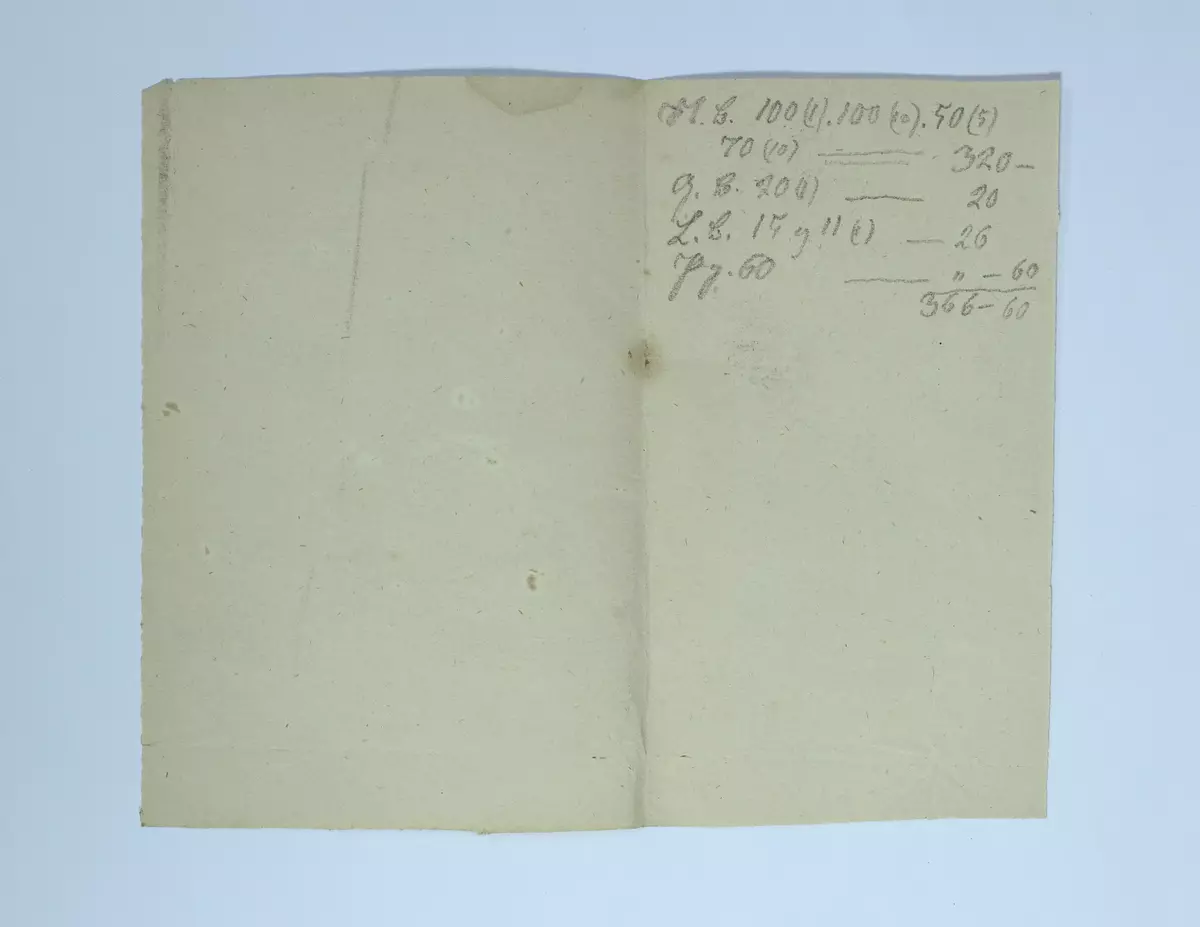 M. B. 100(1). 100(10). 50(5)
70 (10) — 320 —
G. B. 20(1) — 20
L. B. 15 y 11 (1) — 26
Pg. 60 — " — 60
366 — 60